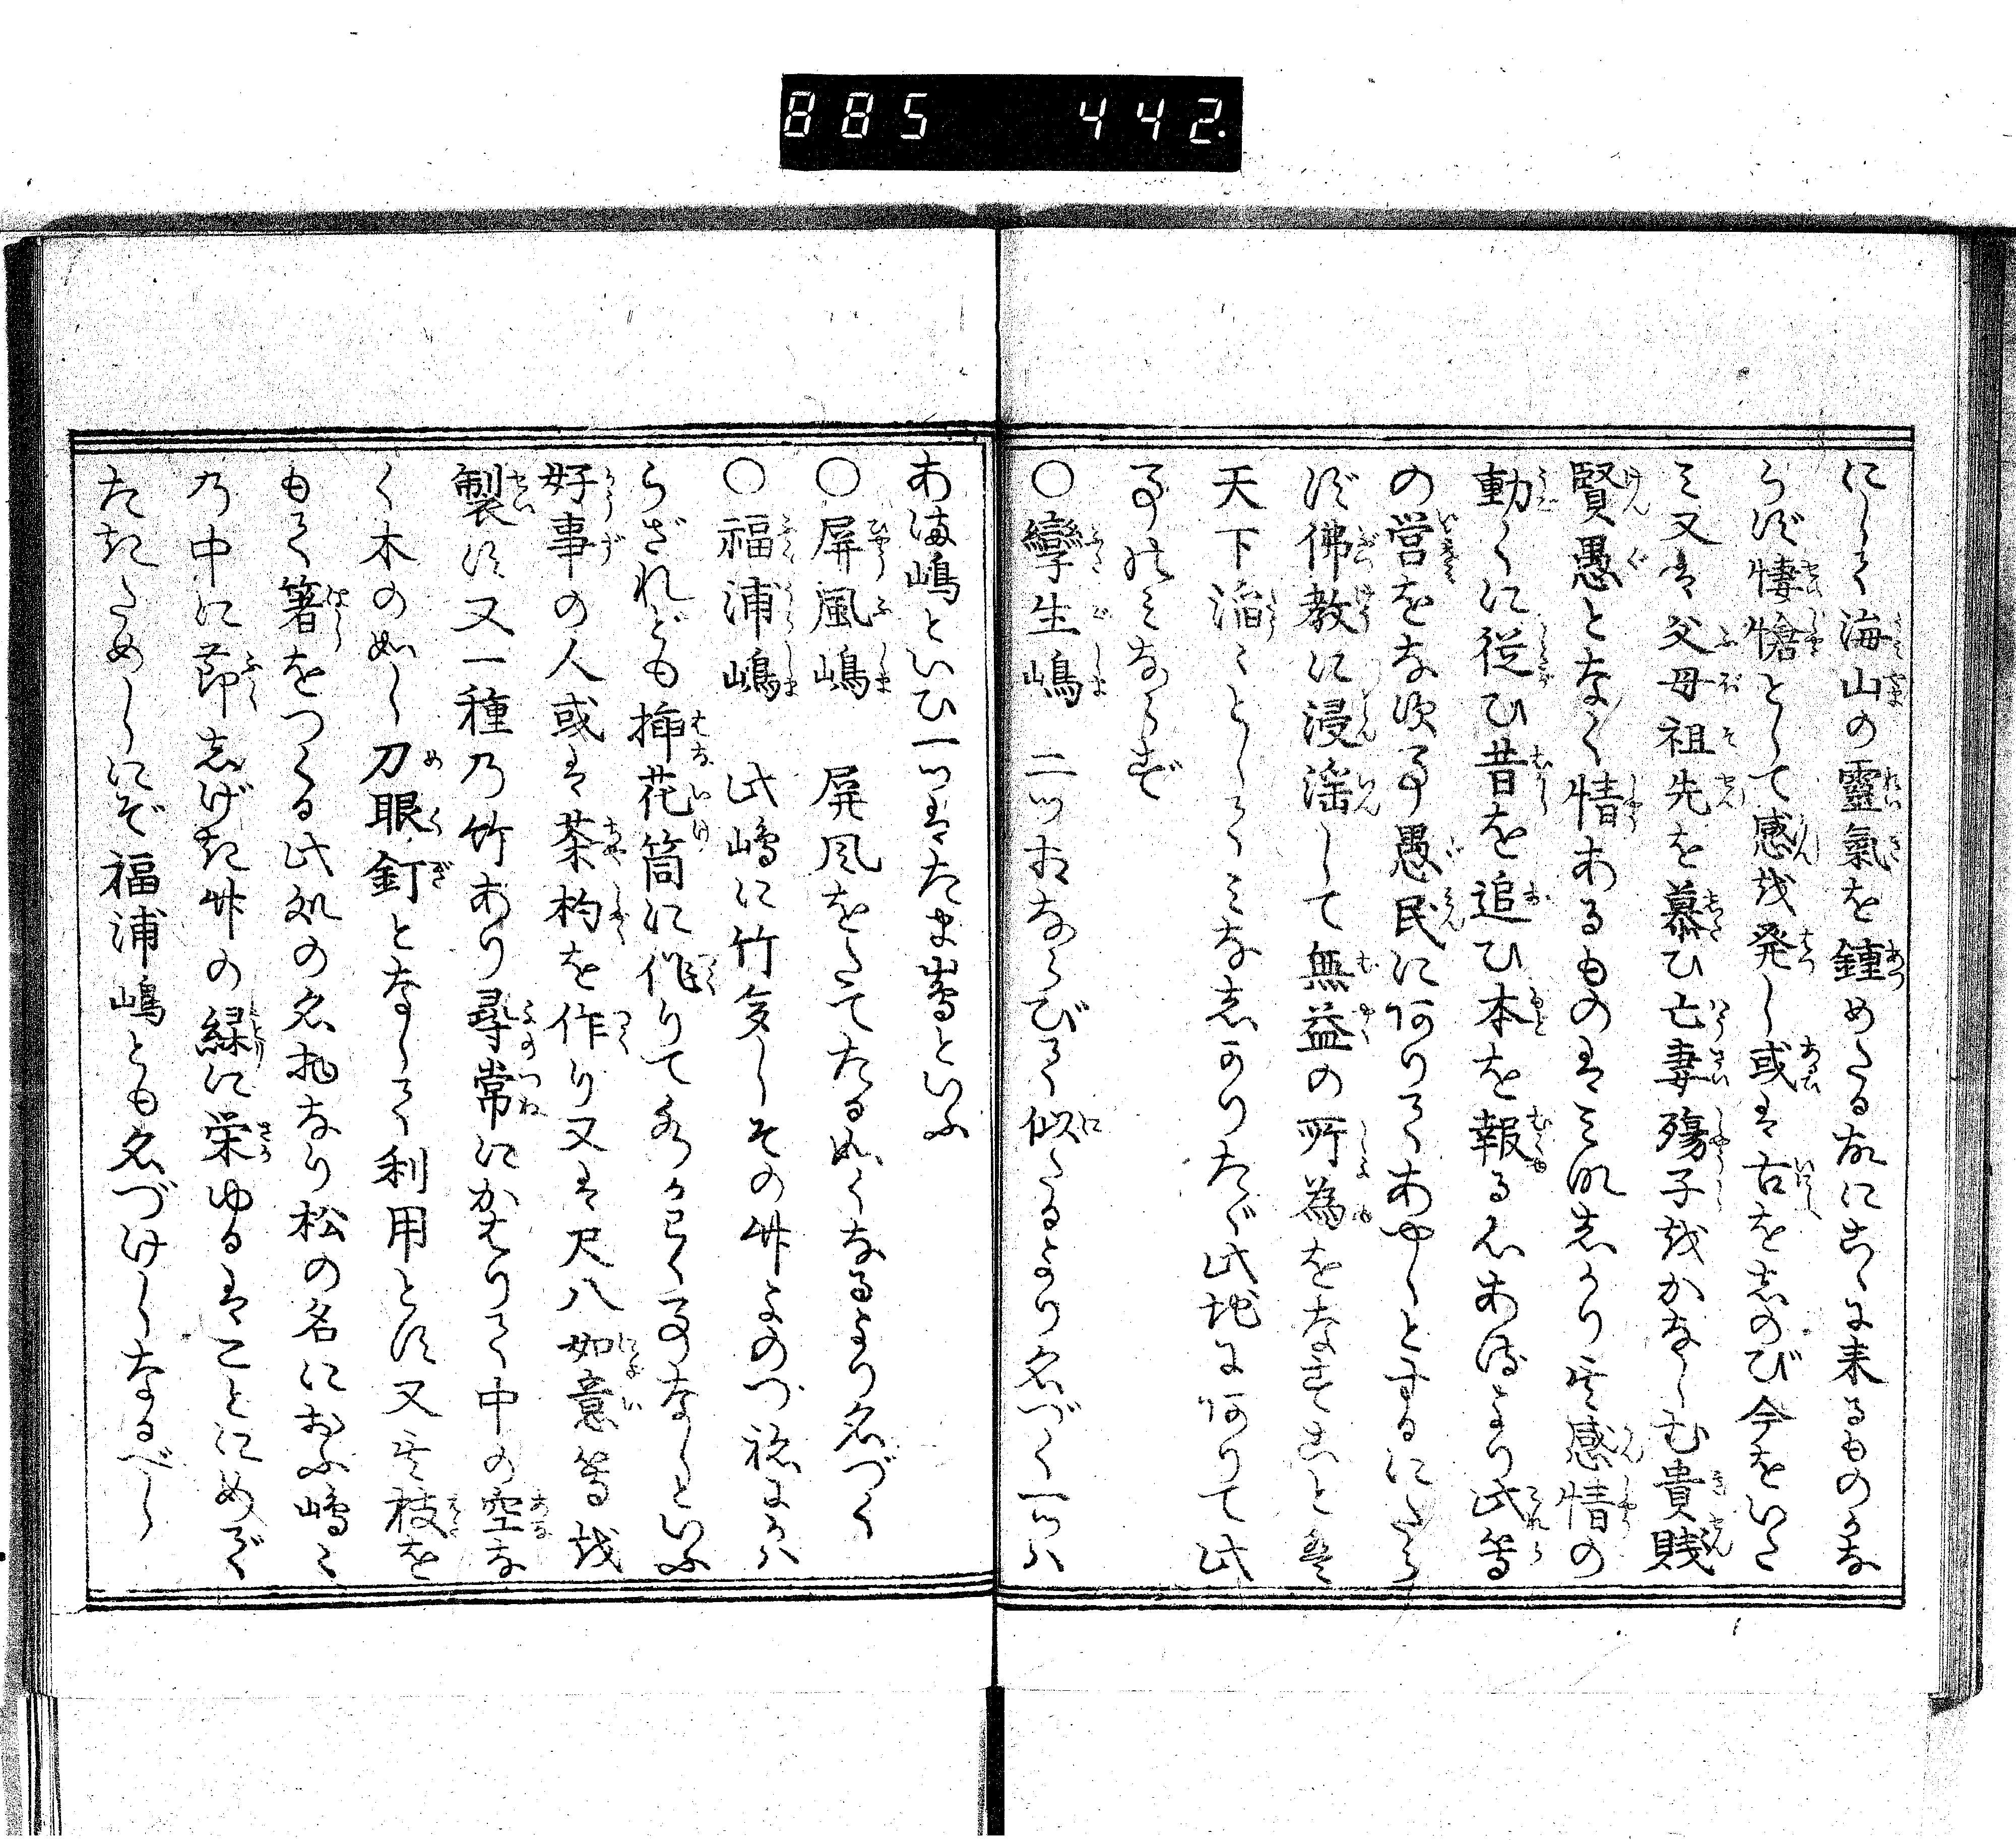 885 442
にして海山の霊氣を鍾めたる故にこゝに来るものかな
らず悽愴として感を発し或は古をしのび今をいた
み又は父母祖先を慕ひ亡妻殤子をかなしむ貴賤
賢愚となく情あるものはみな然り其感情の
動くに従ひ昔を追ひ本を報る心あるより此等
の営をなす事愚民にありてあやしとするにたら
ず佛教に浸淫して無益の所為をなすこと是
天下滔々としてみな然りたゞ此地にありて此
事のみならず
○孿生嶋　二ツおならびて似たるより名づく一つハ
あま嶋といひ一つはたま嶋といふ
○屏風嶋　屏風をたてたる如くなるより名づく
○福浦嶋　此嶋に竹多しその竹よのつねにかハ
らざれども挿花筒に作りて水かはく事なしといふ
好事の人或は茶杓を作り又は尺八如意等を
製す又一種の竹あり尋常にかはりて中の空な
く木の如し刀眼釘となして利用とす又其枝を
もて箸をつくる此処の名物なり松の名におふ嶋々
の中に節しげき竹の緑に栄ゆるはことにめで
たきためしにぞ福浦嶋とも名づけしなるべし